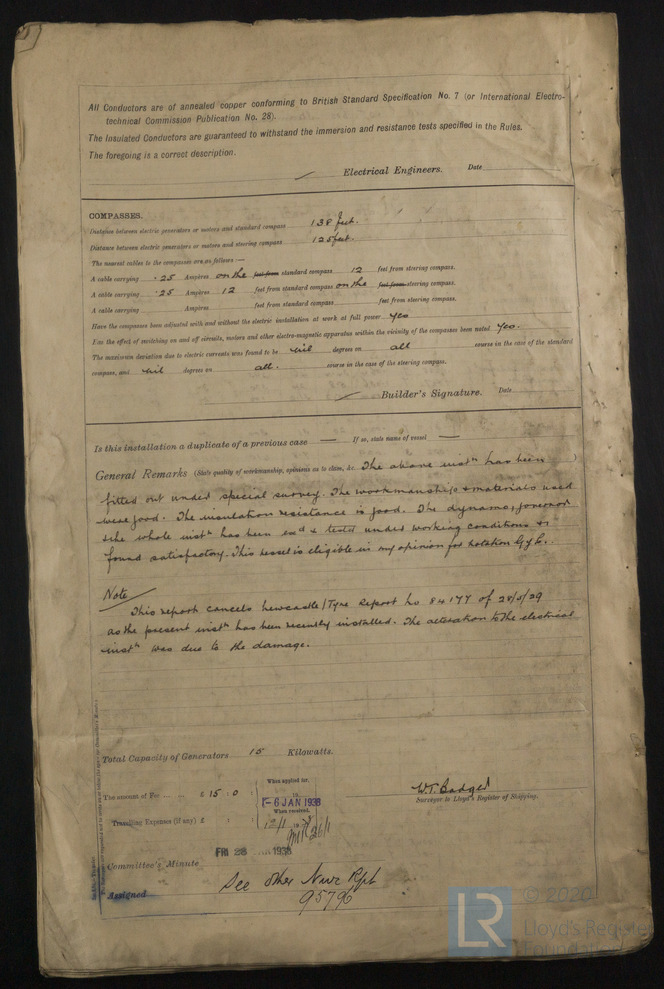 All Conductors are of annealed copper conforming to British Standard Specification No. 7 (or International Electro-
technical Commission Publication No. 28).
The Insulated Conductors are guaranteed to withstand the immersion and resistance tests specified in the Rules.
The foregoing is a correct description.
Electrical Engineers. Date
COMPASSES.
Distance between electric generators or motors and standard compass 138 feet.
Distance between electric generators or motors and steering compass 125 feet.
The nearest cables to the compasses are as follows:—
A cable carrying .25 Ampères on the feet from standard compass 12 feet from steering compass.
A cable carrying .25 Ampères 12 feet from standard compass on the feet from steering compass.
A cable carrying Ampères feet from standard compass feet from steering compass.
Have the compasses been adjusted with and without the electric installation at work at full power yes
Has the effect of switching on and off circuits, motors and other electro-magnetic apparatus within the vicinity of the compasses been noted yes.
The maximum deviation due to electric currents was found to be nil degrees on all course in the case of the standard
compass, and nil degrees on all. course in the case of the steering compass.
Builder's Signature. Date
Is this installation a duplicate of a previous case — If so, state name of vessel —
General Remarks (State quality of workmanship, opinions as to class, &c. The above instn has been
fitted out under special survey. The workmanship & materials used
were good. The insulation resistance is good. The dynamo, governor
& the whole instn has been exd & tested under working conditions &
found satisfactory. This vessel is eligible in my opinion for notation
Note
This report cancels Newcastle/Tyne Report No 84177 of 28/5/29
as the present instn has been recently installed. The alteration to the electrical
instn was due to the damage.
Total Capacity of Generators 15 Kilowatts.
The amount of Fee £ 15 : 0 :
When applied for,
-6 JAN 1938
When received,
Travelling Expenses (if any) £
W.T. Badger
Surveyor to Lloyd's Register of Shipping.
FRI 28 JAN 1938
Committee's Minute
Assigned
See other Nwc Rpt
95796
LR
© 2020
Lloyd's Register
Foundation